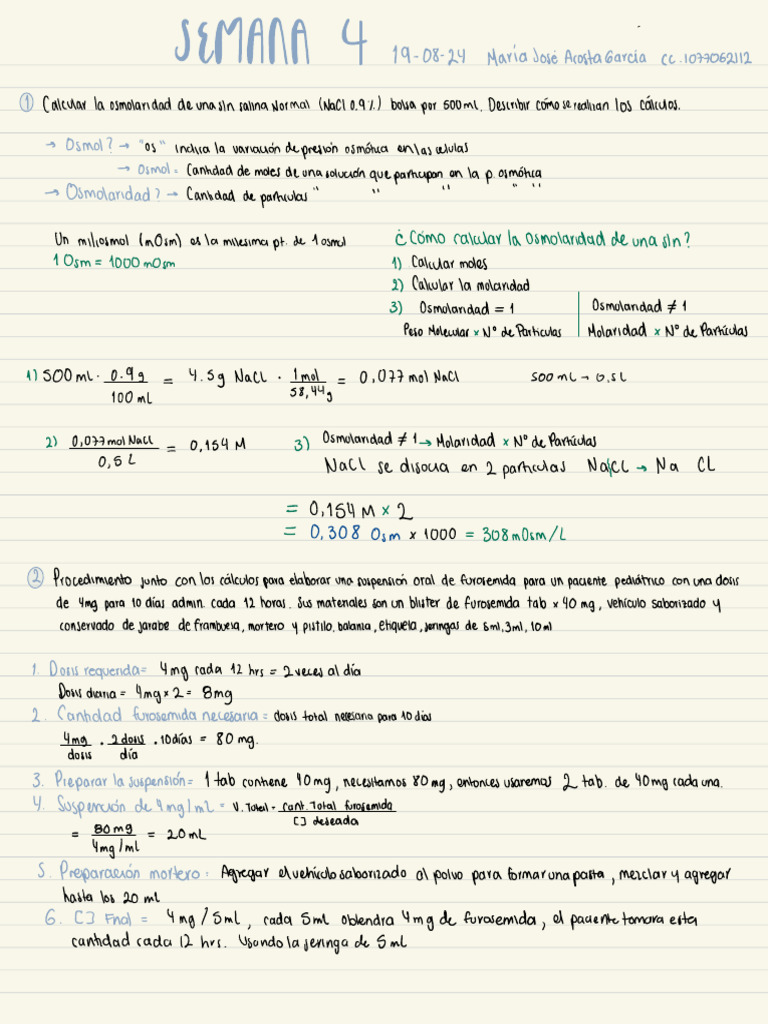 SEMANA 4 19-08-24 María José Acosta García cc.1077062112
① Calcular la osmolaridad de una sln salina Normal (NaCl 0.9%) bolsa por 500 ml. Describir cómo se realizan los cálculos.
→ Osmol? → "os" indica la variación de presión osmótica en las células
→ Osmol = Cantidad de moles de una solución que participan en la p. osmótica
→ Osmolaridad? → Cantidad de partículas " " " " "
Un miliosmol (mOsm) es la milesima pt. de 1 osmol
1 Osm = 1000 mOsm
¿Cómo calcular la Osmolaridad de una sln?
1) Calcular moles
2) Calcular la molaridad
3) Osmolaridad = 1
Peso Molecular × Nº de Partículas
Osmolaridad ≠ 1
Molaridad × Nº de Partículas
1) 500 ml · 0.9g / 100 mL = 4.5g NaCl · 1mol / 58,44g = 0,077 mol NaCl 500 mL → 0.5 L
2) 0,077 mol NaCl / 0,5 L = 0,154 M
3) Osmolaridad ≠ 1 → Molaridad × Nº de Partículas
NaCl se disocia en 2 partículas Na|CL → Na CL
= 0,154 M × 2
= 0,308 Osm × 1000 = 308 mOsm/L
② Procedimiento junto con los cálculos para elaborar una suspensión oral de furosemida para un paciente pediátrico con una dosis
de 4mg para 10 días admin. cada 12 horas. Sus materiales son un blister de furosemida tab × 40 mg, vehículo saborizado y
conservado de jarabe de frambuesa, mortero y pistilo, balanza, etiqueta, jeringas de 5ml, 3ml, 10ml
1. Dosis requerida = 4mg cada 12 hrs = 2 veces al día
Dosis diaria = 4mg × 2 = 8mg
2. Cantidad furosemida necesaria = dosis total necesaria para 10 días
4mg / dosis · 2 dosis / día · 10 días = 80 mg.
3. Preparar la suspensión = 1 tab contiene 40mg, necesitamos 80mg, entonces usaremos 2 tab. de 40mg cada una.
4. Suspención de 4mg/mL = V. Total = cant. Total furosemida / [] deseada
= 80mg / 4mg/ml = 20mL
5. Preparación mortero = Agregar el vehículo saborizado al polvo para formar una pasta, mezclar y agregar
hasta los 20 ml
6. [] Fnal = 4mg / 5ml, cada 5ml obtendra 4mg de furosemida, el paciente tomara esta
cantidad cada 12 hrs. Usando la jeringa de 5mL